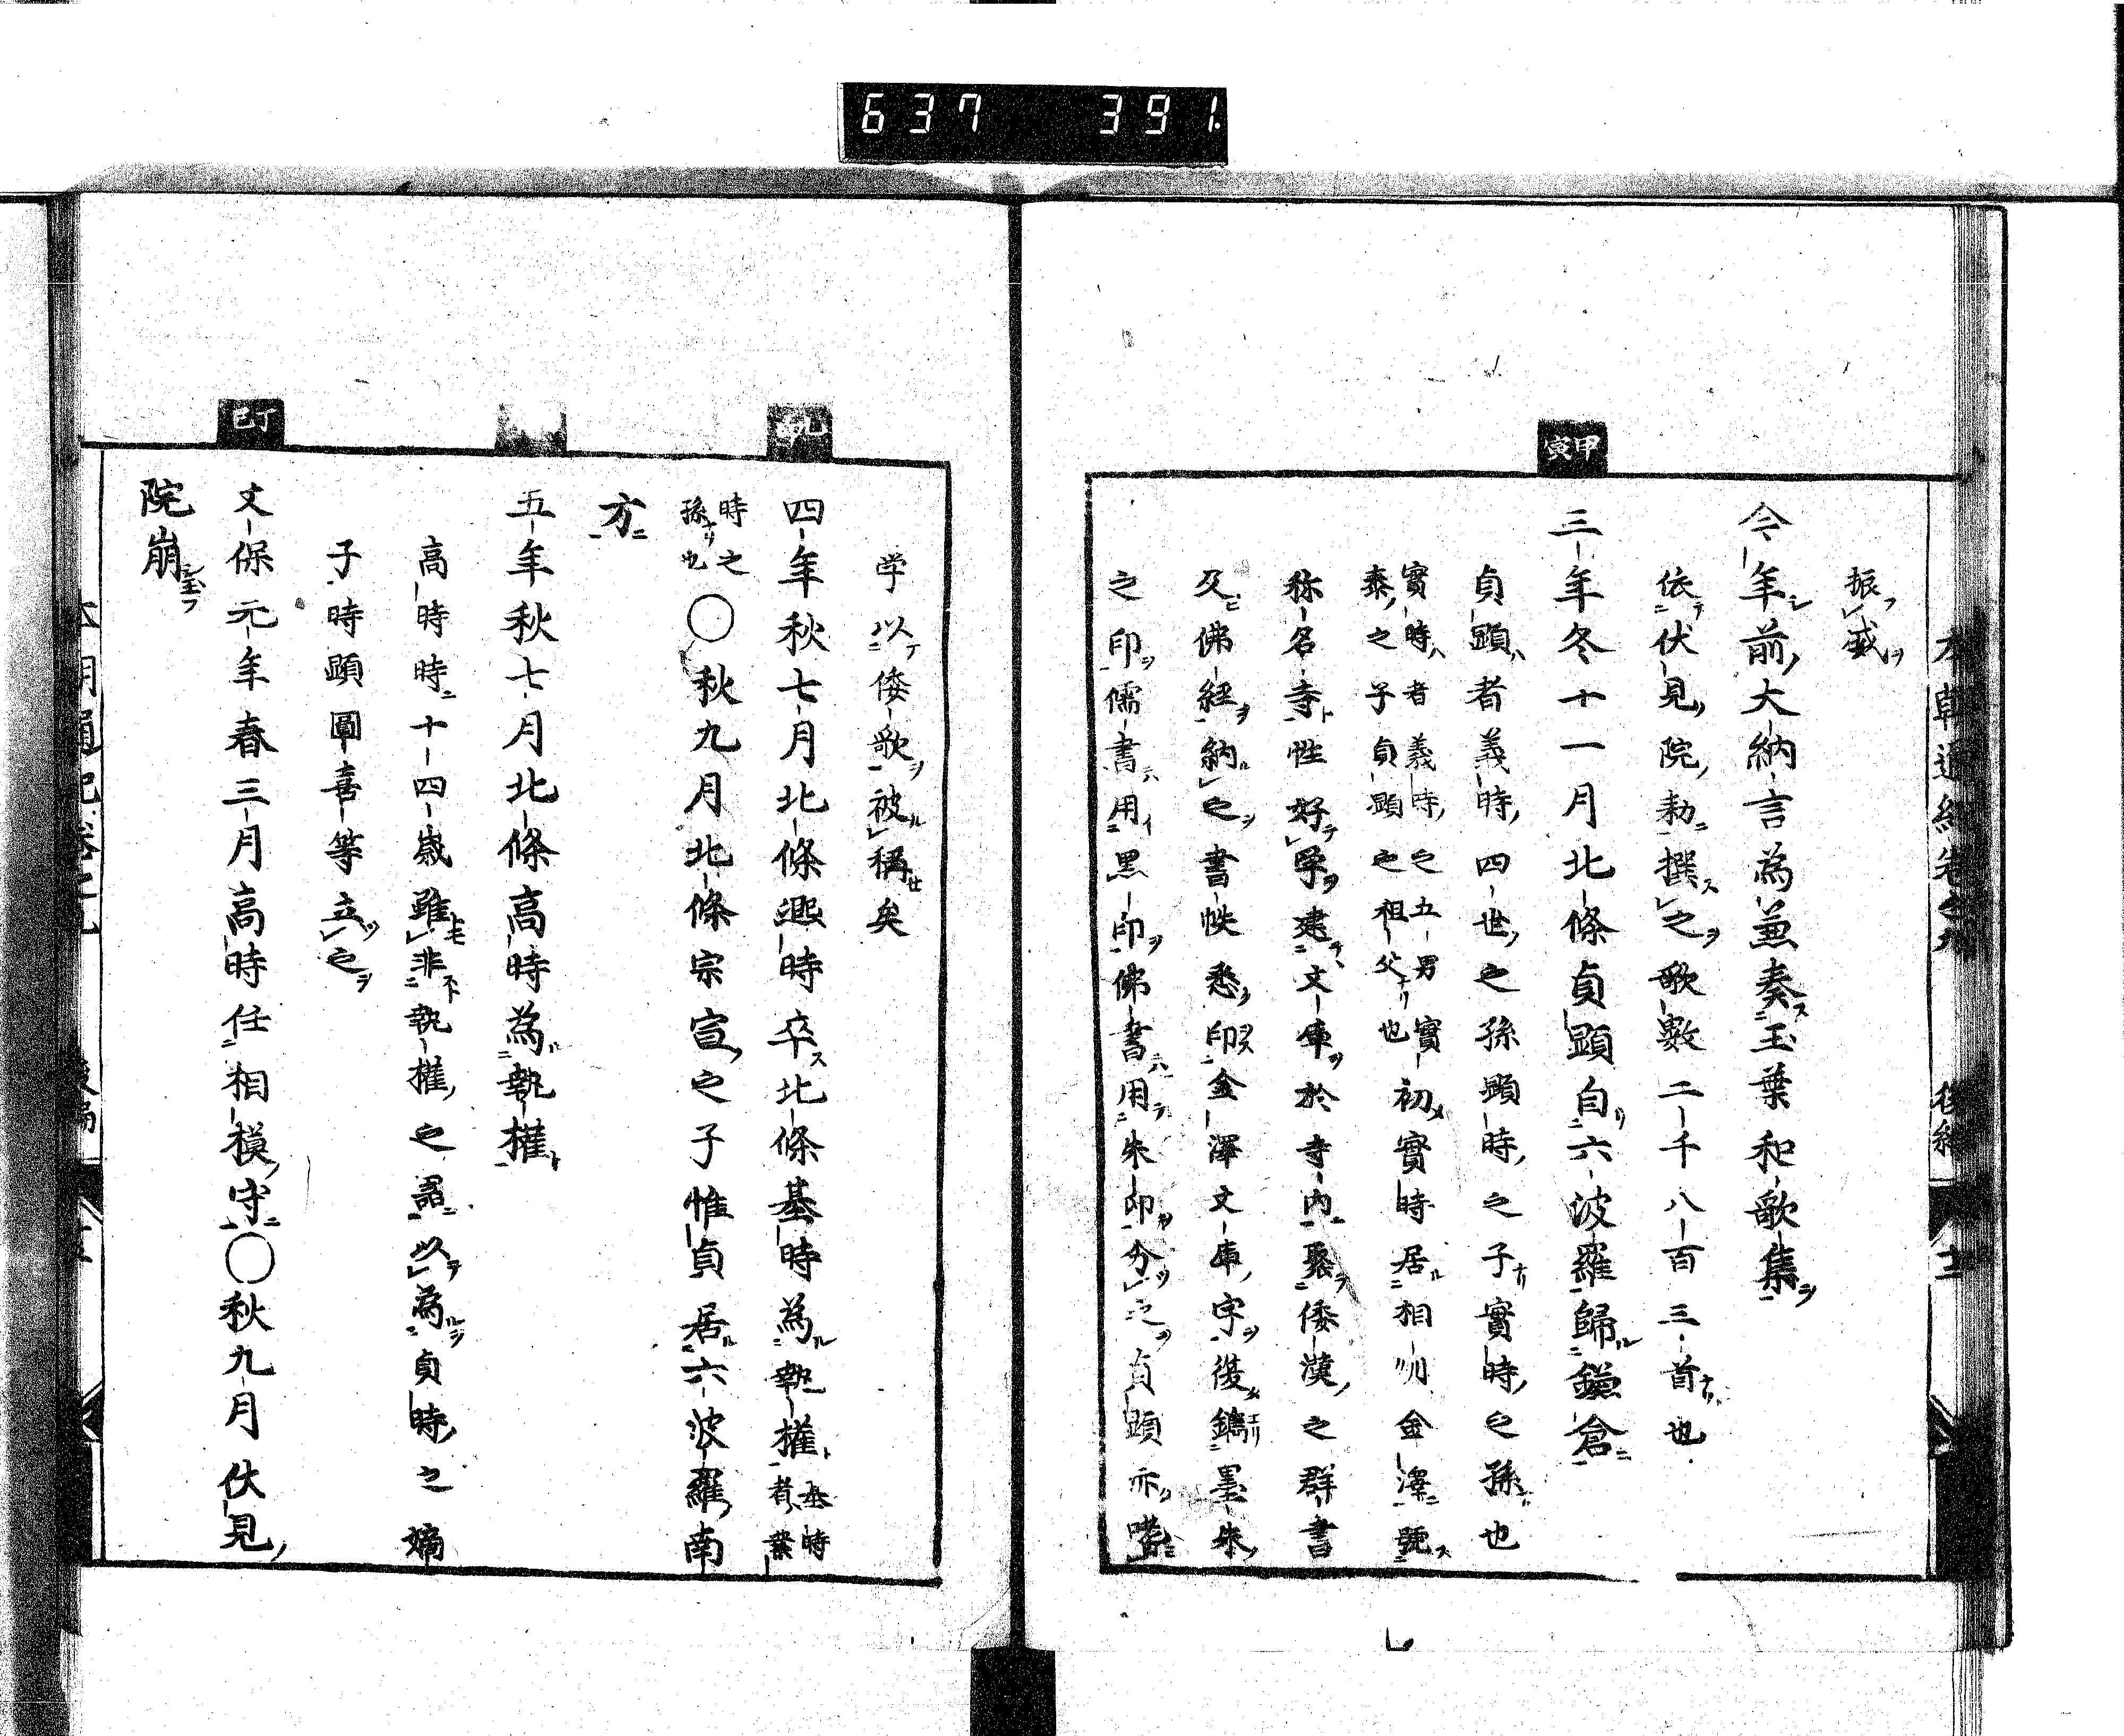 637 391
本朝通紀卷之九 後編 十二
振威
今年前大納言為兼奏玉葉和歌集
依伏見院勅撰之歌數二千八百三首也
甲寅
三年冬十一月北條貞顕自六波羅歸鎌倉
貞顕者義時四世之孫顕時之子實時之孫也
實時者義時之五男實
泰之子貞顕之祖父也
初實時居相州金澤號
称名寺性好学建文庫於寺内聚倭漢之群書
及佛經納之書帙悉印金澤文庫字後鐫墨朱
之印儒書用黒印佛書用朱印分之貞顕亦嗜
学以倭歌被稱矣
乙卯
四年秋七月北條熙時卒北條基時為執權
基時
者業
時之
孫也
〇秋九月北條宗宣之子惟貞居六波羅南
方
五年秋七月北條高時為執權
高時時十四歳雖非執權之器以為貞時之嫡
子時顕圓喜等立之
丁巳
文保元年春三月高時任相模守〇秋九月伏見
院崩